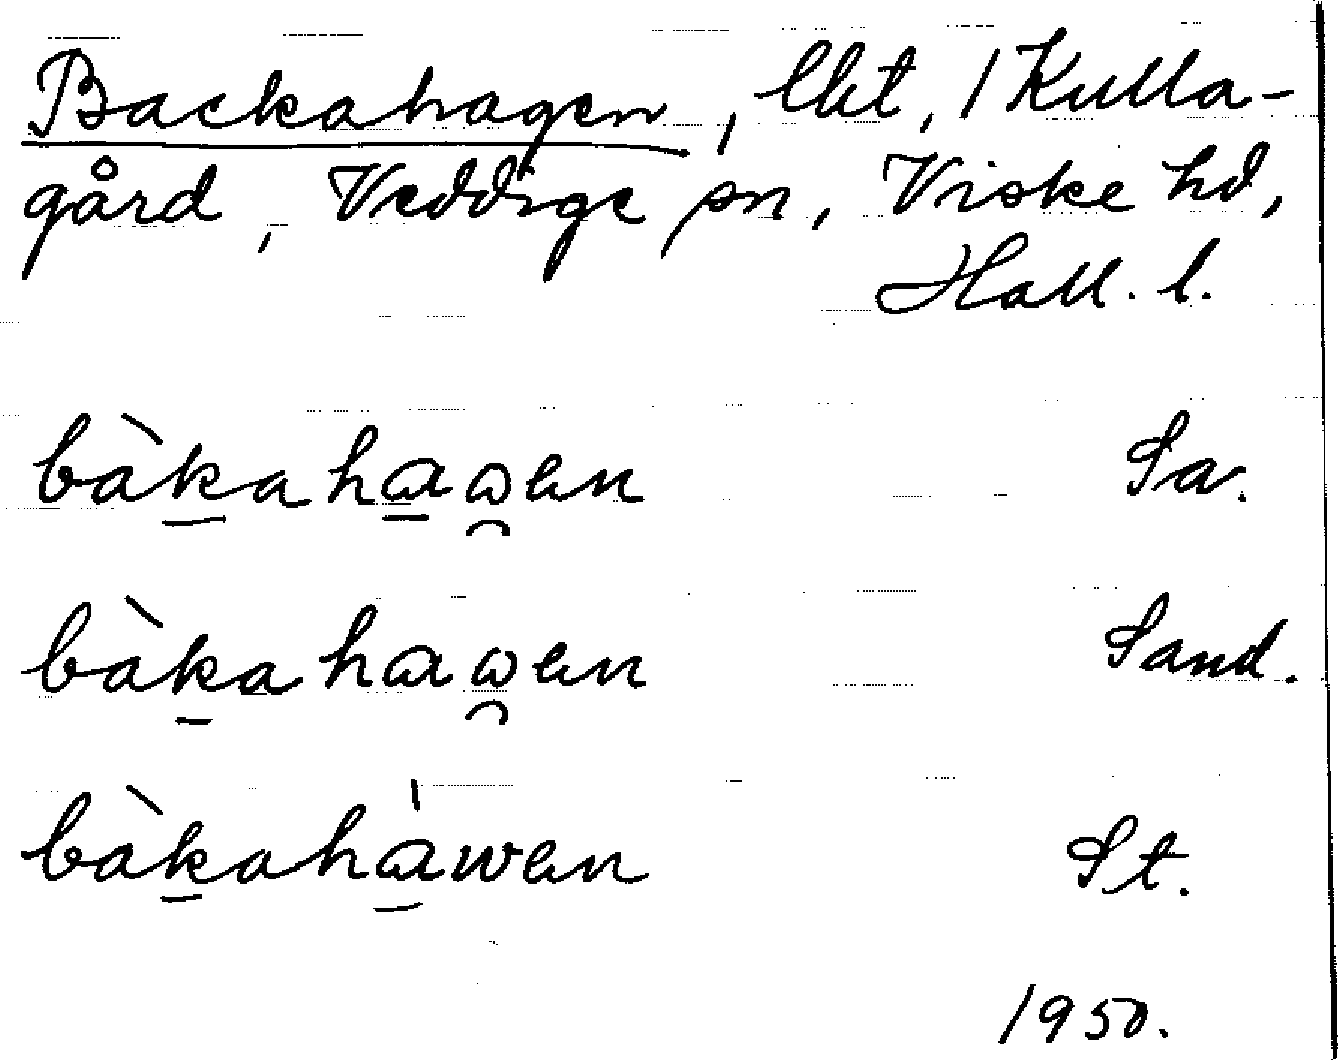 Backahagen, lht, 1 Kulla-
gård, Veddige sn, Viske hd,
Hall. l.
bàkahaωen Sa.
bàkahaωen Sand.
bàkahàwen St.
1950.